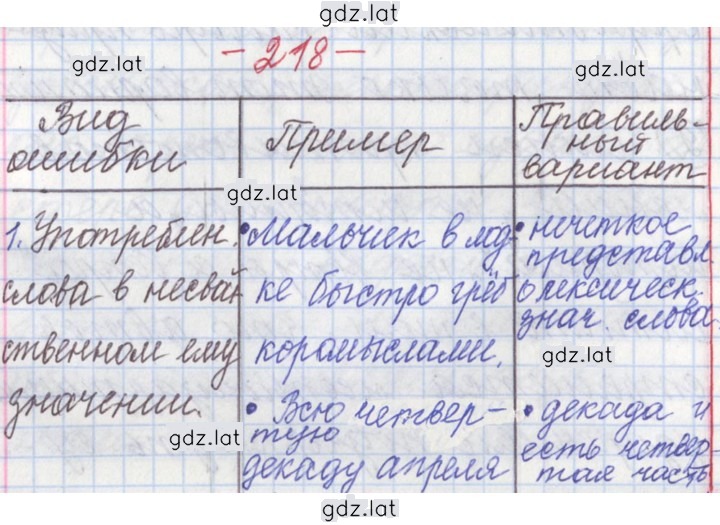 gdz.lat
- 218 -
gdz.lat
gdz.lat
Вид
ошибки
Пример
Правиль-
ный
вариант
gdz.lat
1. Употреблен.
слова в несвой
ственном ему
значении.
• Мальчик в лод-
ке быстро грёб
коромыслами.
• Всю четвер-
тую
декаду апреля
• нечеткое
представл.
о лексическ.
знач. слова
gdz.lat
• декада и
есть четвер-
тая часть
gdz.lat
gdz.lat